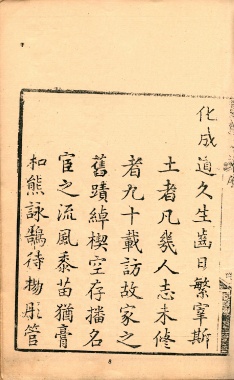 化成道久生齒日繁宰斯
土者凡幾人志未修
者九十載訪故家之
舊蹟綽楔空存擋名
宦之流風黍苗猶膏
和熊詠鵠待拗彤管
8